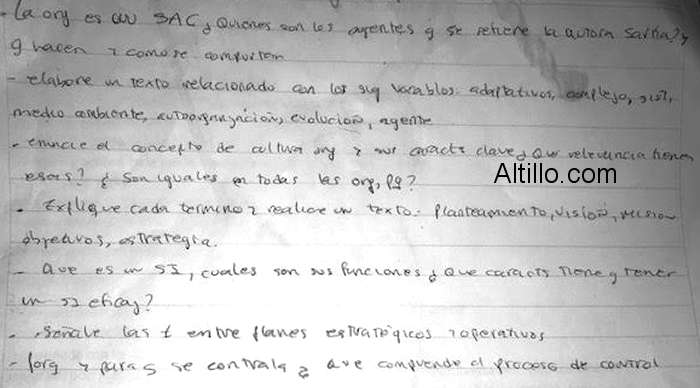 - La org es un SAC ¿ Quienes son los agentes q se refiere la autora Sarita? y
q hacen y como se comportan
- elabore un texto relacionado con los sig variables: adaptativos, complejo, sist,
medio ambiente, autoorganizacion, evolucion, agente
- enuncie el concepto de cultura org y sus caracts clave ¿ Que relevancia tienen
esas? ¿ Son iguales en todas las org, PQ?
Altillo.com
. Explique cada termino y realice un texto. Planteamiento, vision, mision
objetivos, estrategia.
- Que es un SI, cuales son sus funciones ¿ Que caracts tiene q tener
un SI eficaz?
. Señale las ≠ entre planes estrategicos y operativos
- Porq y para q se controla ¿ Que comprende el proceso de control